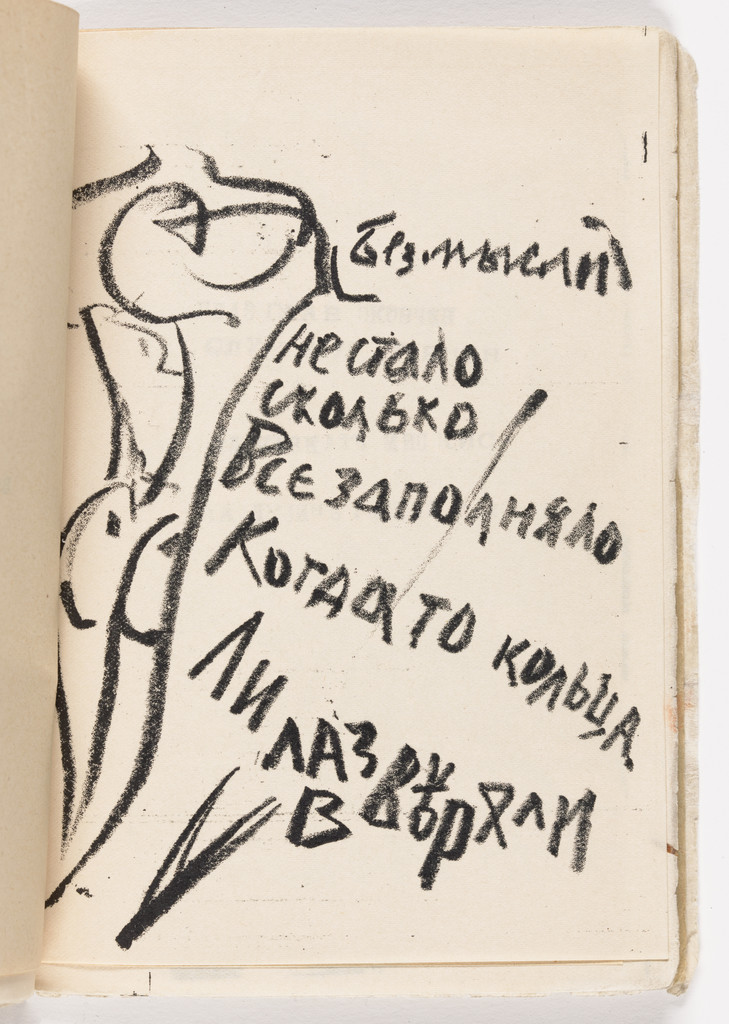 Безмыслий
не стало
сколько
Все заполняло
Когда то кольца
Ли
лаз
В